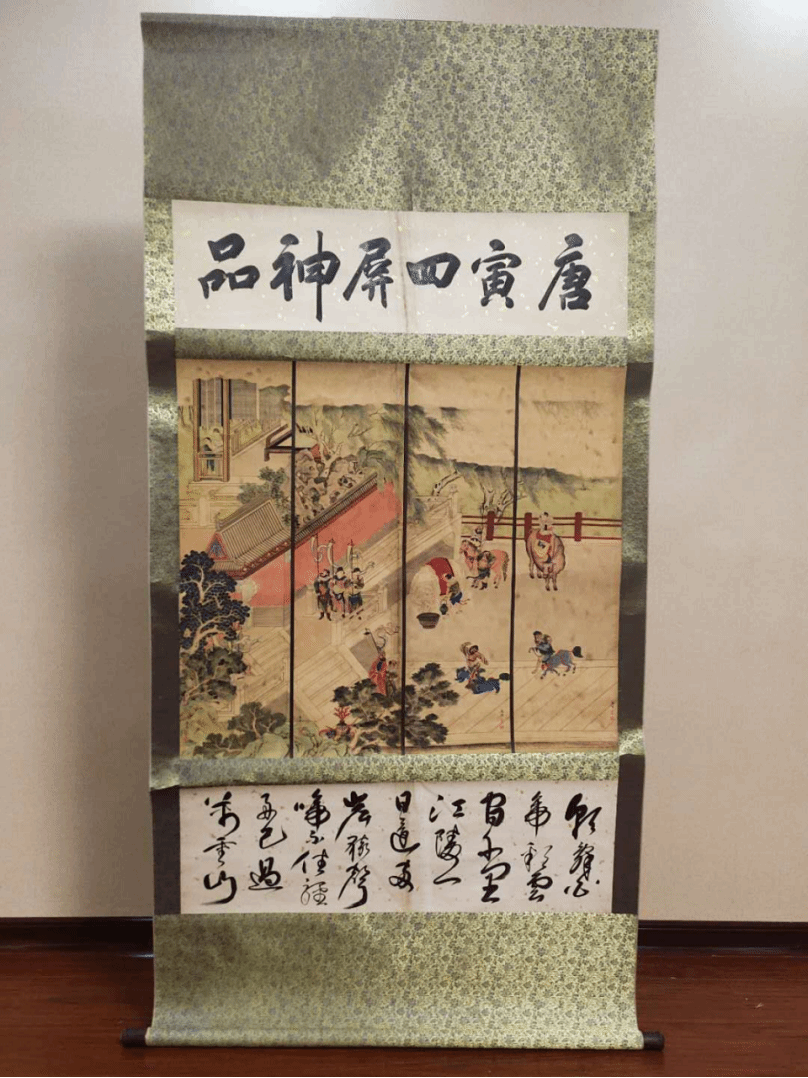 唐寅四屏神品
朝辭白
帝彩雲
間千里
江陵一
日還兩
岸猿聲
啼不住輕
舟已過
萬重山